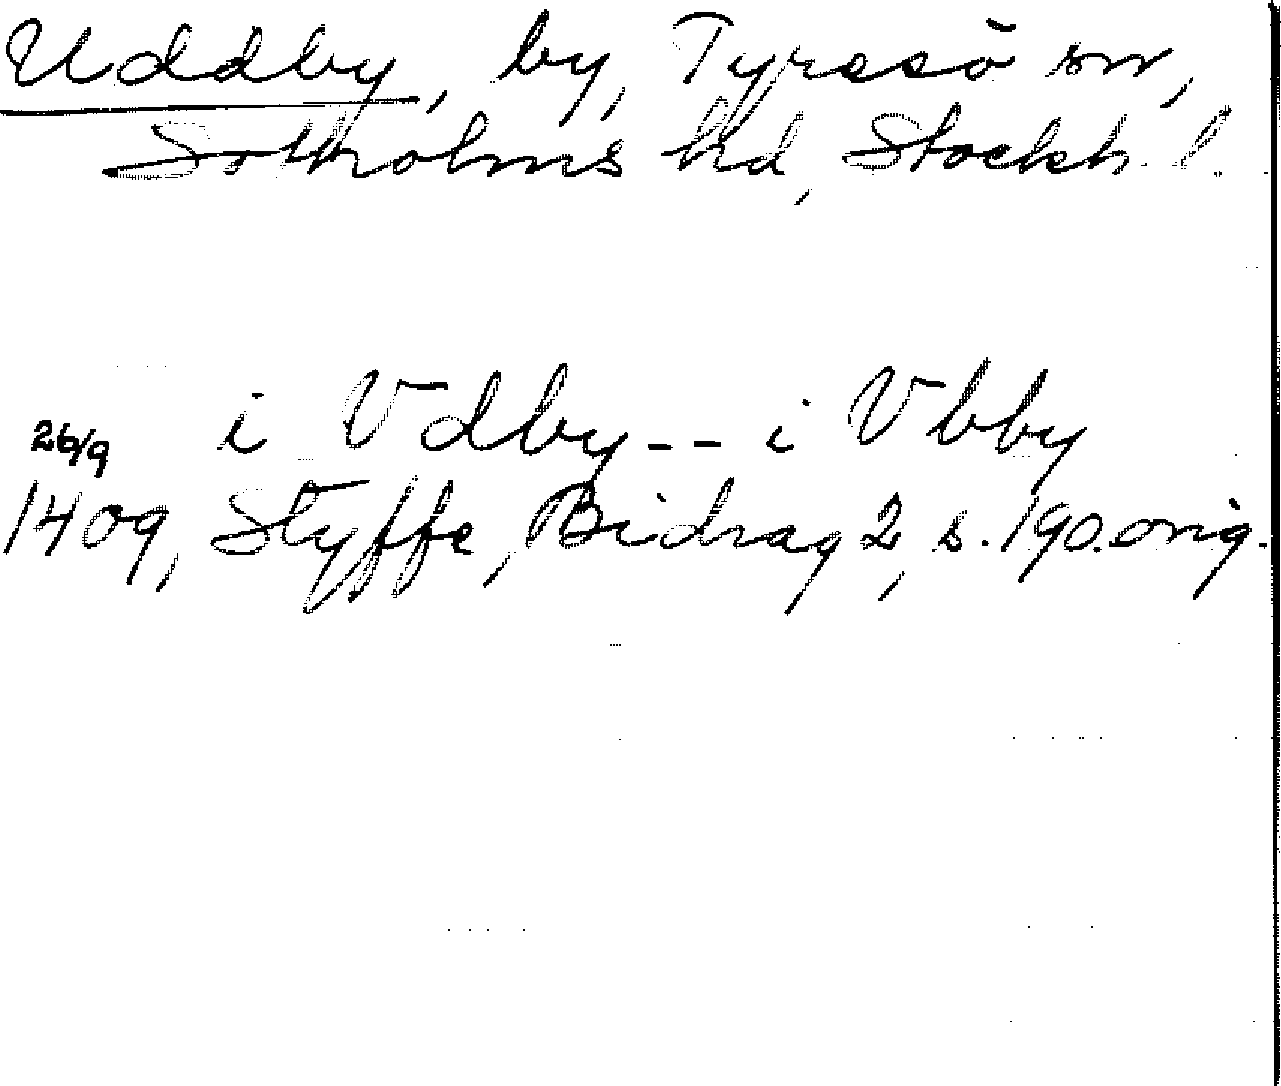 Uddby, by, Tyresö sn,
Sotholms hd, Stockh. l.
i Vdby -- i Vbby
26/9
1409, Styffe, Bidrag 2, s. 190. orig.